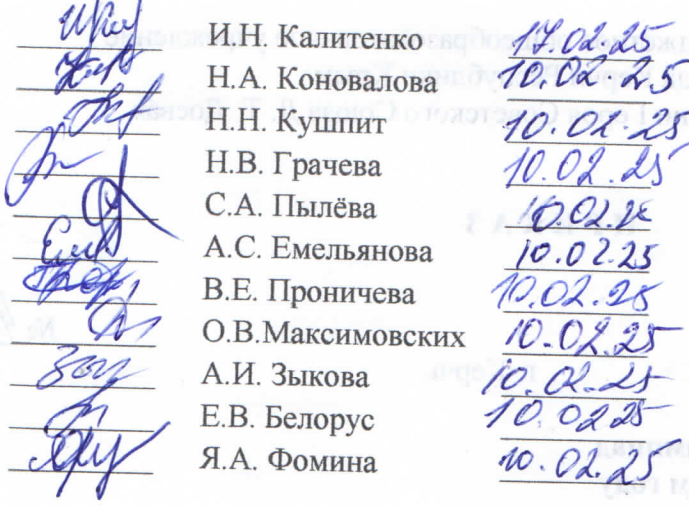 И.Н. Калитенко 17.02.25
Н.А. Коновалова 10.02.25
Н.Н. Кушпит 10.02.25
Н.В. Грачева 10.02.25
С.А. Пылёва 10.02.25
А.С. Емельянова 10.02.25
В.Е. Проничева 10.02.25
О.В.Максимовских 10.02.25
А.И. Зыкова 10.02.25
Е.В. Белорус 10.02.25
Я.А. Фомина 10.02.25